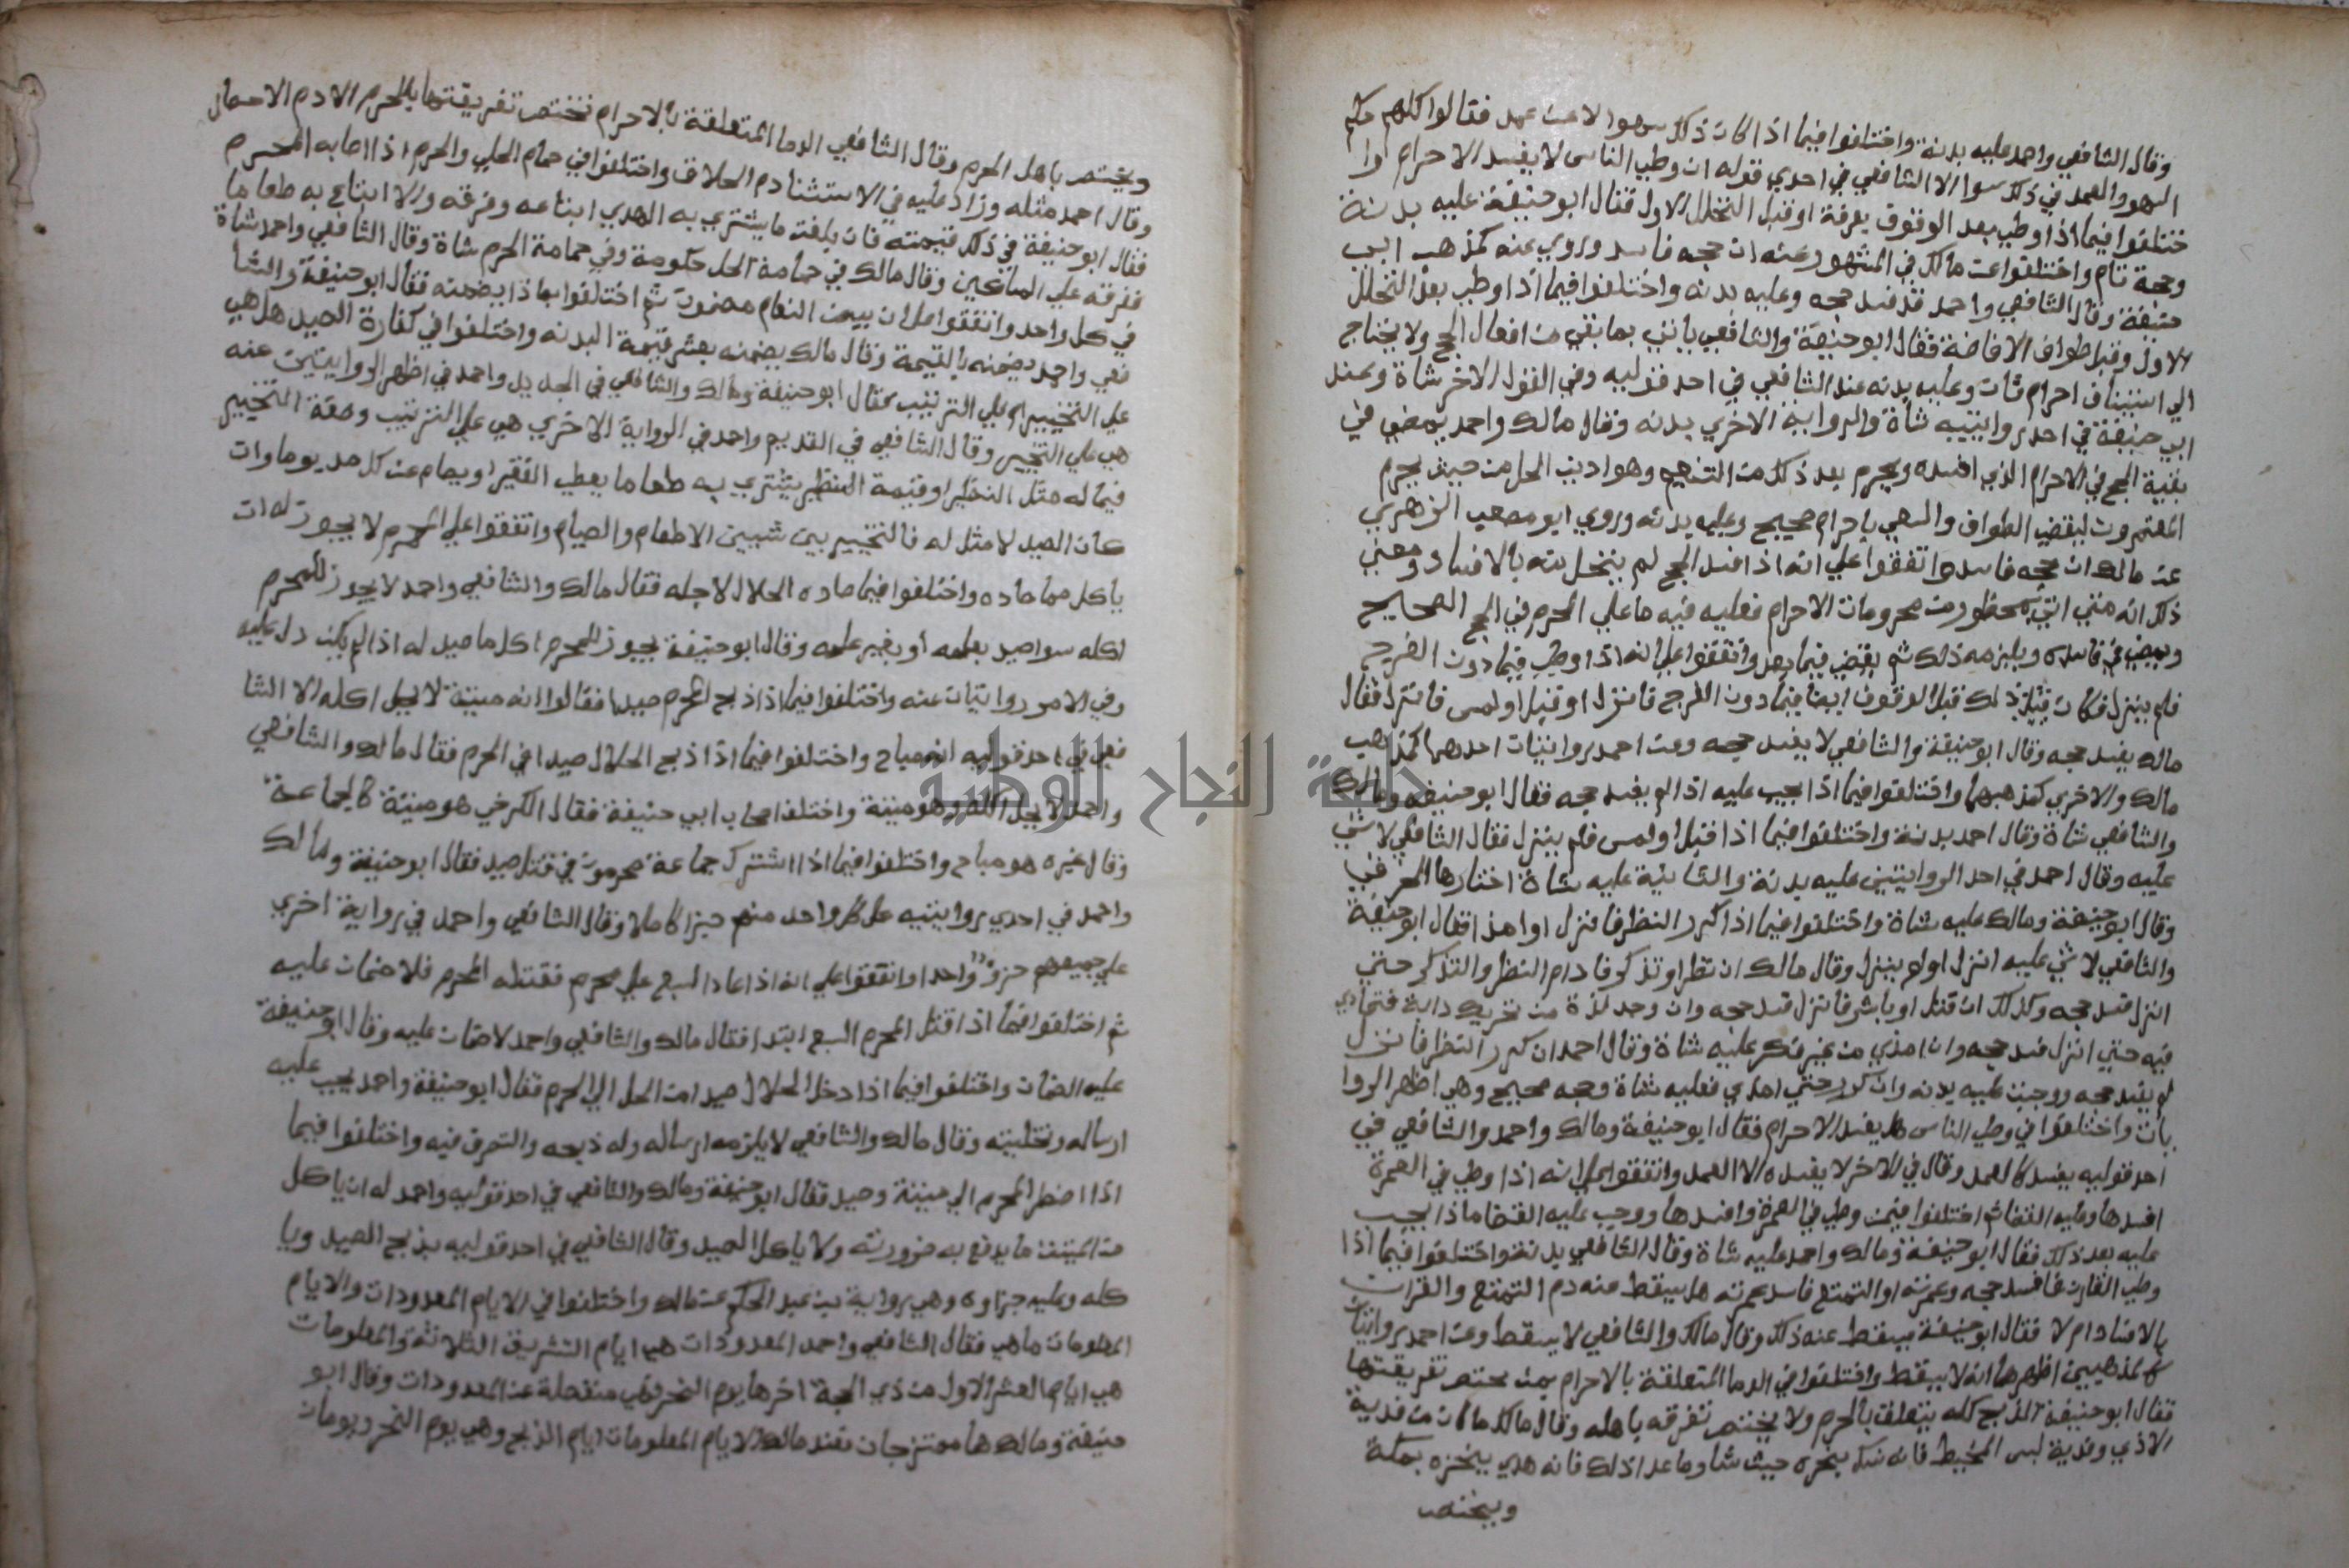 وقال الشافعي واحمد عليه بدنة واختلفوا فيما اذا كان ذلك سهوا لا عن عمد فقالوا كلهم حكم
السهو والعمد في ذلك سوا الا الشافعي في احدي قوله ان وطي الناسي لا يفسد الاحرام وا
ختلفوا فيما اذا وطي بعد الوقوف بعرفة او قبل التحلل الاول فقال ابو حنيفة عليه بدنة
وحجة تام واختلفوا عن مالك في المشهور عنه ان حجه فاسد وروي عنه كمذهب ابي
حنيفة وقال الشافعي واحمد قد فسد حجه وعليه بدنه واختلفوا فيما اذا وطي بعد التحلل
الاول وقبل طواف الافاضة فقال ابو حنيفة والشافعي ياتي بما بقي من افعال الحج ولا يحتاج
الي استيناف احرام ثان وعليه بدنه عند الشافعي في احد قوليه وفي القول الاخر شاة وعند
ابي حنيفة في احد روايتيه شاة والرواية الاخري بدنه وقال مالك واحمد يمضي في
بقية الحج في الاحرام الذي افسده ويحرم بعد ذلك من التنعيم وهو ادين الحل من حيث يحرم
المعتمرون ليقضي الطواف والسعي باحرام صحيح وعليه بدنه وروي ابو مصعب الزهري
عن مالك ان حجه فاسد واتفقوا علي انه اذا افسد الحج لم يتحلل منه بالافساد ومعني
ذلك انه متي اتي بمحظور من محرومات الاحرام فعليه فيه ما علي المحرم في الحج الصحيح
ويمضي في فاسده ويلزمه ذلك ثم يقضي فيما بعد واتفقوا علي انه اذا وطي فيما دون الفرج
فلم ينزل فكان قبل ذلك قبل الوقوف ايضا فيما دون الفرج فانزل او قبل او لمس فانزل فقال
مالك يفسد حجه وقال ابو حنيفة والشافعي لا يفسد حجه وعن احمد روايتيان احدهما كمذهب
مالك والاخري كمذهبهما واختلفوا فيما اذا يجب عليه اذا لم يفسد حجه فقال ابو حنيفه ومالك
والشافعي شاة وقال احمد بدنة واختلفوا فيما اذا قبل او لمس فلم ينزل فقال الشافعي لا شي
عليه وقال احمد في احد الروايتيني عليه بدنة والثانية عليه شاة اختارها الخرقي
وقال ابو حنيفة ومالك عليه شاة واختلفوا فيما اذا كرر النظر فانزل او امذا فقال ابو حنيفة
والشافعي لا شي عليه انزل اولم ينزل وقال مالك ان نظر او تذكر فادام النظر والتذكر حتي
انزل فسد حجه وكذلك ان قبل او باشر فانزل فسد حجه وان وجد لذة من تحريك دابة فتمادي
فيه حتي انزل فسد حجه وان امذي من غير فكر عليه شاة وقال احمد ان كرر النظر فانزل
لم يفسد حجه ووجبت عليه بدنه وان كرر حتي امذي فعليه شاة وحجه صحيح وهي اظهر الروا
يات واختلفوا في وطي الناسي هل يفسد الاحرام فقال ابو حنيفة ومالك واحمد والشافعي في
احد قوليه يفسد كالعمد وقال في الاخر لا يفسده الا العمد واتفقوا علي انه اذا وطي في العمرة
افسدها وعليه القضا ثم اختلفوا فيمن وطي في العمرة وافسدها ووجب عليه القضا ماذا يجب
عليه بعد ذلك فقال ابو حنيفة ومالك واحمد عليه شاة وقال الشافعي بدنة واختلفوا فيما اذا
وطي القارن فافسد حجه وعمرته او المتمتع فاسد عمرته هل يسقط منه دم التمتع والقران
بالافساد ام لا فقال ابو حنيفة يسقط عنه ذلك وقال مالك والشافعي لا يسقط وعن احمد روايتان
كالمذهبين اظهرهما انه لا يسقط واختلفوا في الدما المتعلقة بالاحرام بمن يختص تفريقتها
فقال ابو حنيفة الذبح كله يتعلق بالحرم ولا يختص تفرقه باهله وقال مالك ما كان من فدية
الاذي وفدية لبس المخيط فانه نسك ينحره حيث شا وما عدا ذلك فانه هدي ينحره بمكة
ويختص
ويختص باهل الحرم وقال الشافعي الدما المتعلقة بالاحرام تختص تفريقتها بالحرم الا دم الاحصار
وقال احمد مثله وزاد عليه في الاستثنا دم الحلاق واختلفوا في حمام الحل والحرم اذا اصابه المحرم
فقال ابو حنيفة في ذلك قيمته فان بلغت ما يشتري به الهدي ابتاعه وفرقه والا ابتاع به طعاما
ففرقه علي المساكين وقال مالك في حمامة الحل حكومة وفي حمامة الحرم شاة وقال الشافعي واحمد شاة
في كل واحد واتفقوا علي ان بيض النعام مضمون ثم اختلفوا بماذا يضمنه فقال ابو حنيفة والشا
فعي واحمد يضمنه بالقيمة وقال مالك يضمنه بعشر قيمة البدنه واختلفوا في كفارة الصيد هل هي
علي التخيير ام علي الترتيب فقال ابو حنيفة ومالك والشافعي في الجديد واحمد في اظهر الروايتين عنه
هي علي التخيير وقال الشافعي في القديم واحمد في الرواية الاخري هي علي الترتيب وصفة التخيير
فيما له مثل النظير او قيمة النظير يشتري به طعاما يعطي الفقير او يصام عن كل مد يوما وان
كان الصيد لا مثل له فالتخيير بين شيين الاطعام والصيام واتفقوا علي المحرم لا يجوز له ان
ياكل مما صاده واختلفوا فيما صاده الحلال لاجله فقال مالك والشافعي واحمد لا يجوز للمحرم
اكله سوا صيد بعلمه أو بغير علمه وقال ابو حنيفة يجوز للمحرم اكل ما صيد له اذا لم يكن دل عليه
وفي الامر روايتان عنه واختلفوا فيما اذا ذبح المحرم صيدا فقالوا انه ميتة لا يحل اكله الا الشا
فعي في احد قوليه انه مباح واختلفوا فيما اذا ذبح الحلال صيدا في الحرم فقال مالك والشافعي
واحمد لا يحل اكله وهو ميتة واختلف اصحاب ابي حنيفة فقال الكرخي هو ميتة كالجماعة
وقال غيره هو مباح واختلفوا فيما اذا اشترك جماعة محرمون في قتل صيد فقال ابو حنيفة ومالك
واحمد في احدي روايتيه علي كل واحد منهم جزا كاملا وقال الشافعي واحمد في رواية اخري
علي جميعهم جزوا واحدا واتفقوا علي انه اذا عادا السبع علي محرم فقتله المحرم فلا ضمان عليه
ثم اختلفوا فيما اذا قتل المحرم السبع ابتدا فقال مالك والشافعي واحمد لا ضمان عليه وقال ابو حنيفة
عليه الضمان واختلفوا فيما اذا دخل الحلال صيدا من الحل الي الحرم فقال ابو حنيفة واحمد يجب عليه
ارساله وتخليته وقال مالك والشافعي لا يلزمه ارساله وله ذبحه والتصرف فيه واختلفوا فيما
اذا اضطر المحرم الي ميتة وصيد فقال ابو حنيفة ومالك والشافعي في احد قوليه واحمد له ان ياكل
من الميتة ما يدفع به ضرورته ولا ياكل الصيد وقال الشافعي في احد قوليه يذبح الصيد ويا
كله وعليه جزاوه وهي رواية بن عبد الحكم عن مالك واختلفوا في الايام المعدودات والايام
المعلومات ما هي فقال الشافعي واحمد المعدودات هي ايام التشريق الثلاثة والمعلومات
هي ايام العشر الاول من ذي الحجة اخرها يوم النحر فهي منفصلة عن المعدودات وقال ابو
حنيفة ومالك هما ممتزجان فعند مالك الايام المعلومات ايام الذبح وهي يوم النحر ويومان
جامعة النجاح الوطنية